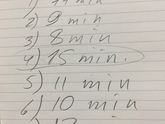 2) 9 min
3) 8 min
4) 15 min.
5) 11 min
6) 10 min